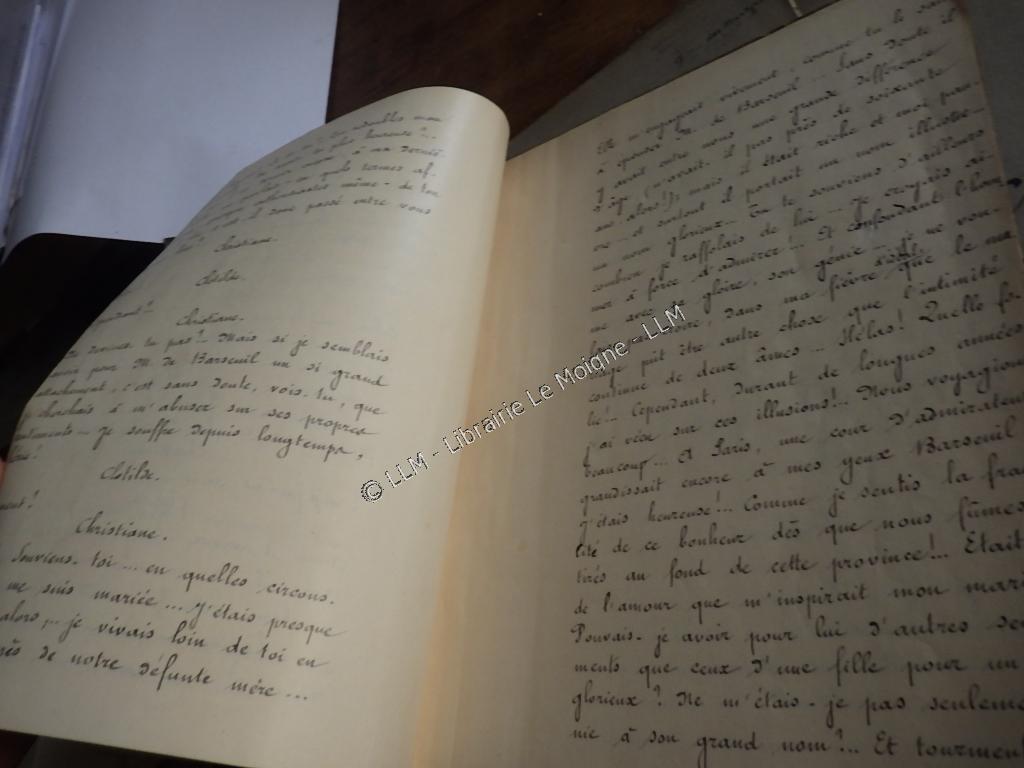 redoubles mon
plus heureuse?...
à ma dernié-
en quels termes af-
enthousiastes même - de ton
passé entre vous
Christiane.
Clotilde.
Christiane.
devines-tu pas?.. Mais si je semblais
pour M. de Barseuil un si grand
attachement, c'est sans doute, vois-tu, que
je cherchais à m'abuser sur ses propres
sentiments... Je souffre depuis longtemps,
Clotilde.
Christiane.
Souviens-toi... en quelles circons-
me suis mariée... J'étais presque
alors... je vivais loin de toi en
de notre défunte mère...
m'engageait vivement, comme tu le sais
à épouser M. de Barseuil... Sans doute il
y avait entre nous une grande différence
d'âge, (n'avait-il pas près de soixante
ans alors!), mais il était riche et
et surtout il portait un nom illustre
un nom glorieux... Tu te souviens d'ailleurs
combien je raffolais de lui... Je croyais ai-
mer à force d'admirer!.. Et confondant l'hom
me avec sa gloire, son génie je ne vou-
dans ma fièvre que le ma
riage pût être autre chose que l'intimité
continue de deux âmes... Hélas! Quelle fo-
lie!.. Cependant, durant de longues années
j'ai vécu sur ces illusions!.. Nous voyagion
beaucoup... A Paris, une cour d'admirateu
grandissait encore à mes yeux Barseuil
j'étais heureuse!.. Comme je sentis la fra
lité de ce bonheur dès que nous fûmes
tirés au fond de cette province!... Etait
de l'amour que m'inspirait mon mari
Pouvais-je avoir pour lui d'autres se
ments que ceux d'une fille pour un
glorieux? Ne m'étais-je pas seuleme
nie à son grand nom?... Et tourmen
© LLM - Librairie Le Moigne - LLM